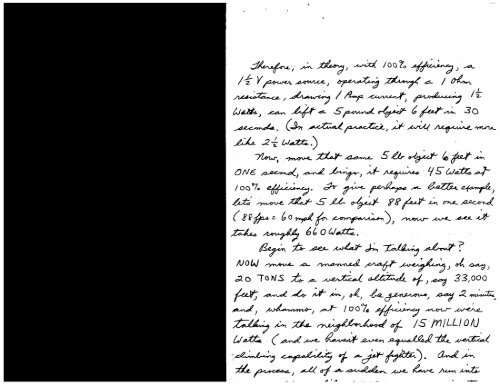 Therefore, in theory, with 100% efficiency, a
1½ V power source, operating through a 1 Ohm
resistance, drawing 1 Amp current, producing 1½
Watts, can lift a 5 pound object 6 feet in 30
seconds. (In actual practice, it will require more
like 2½ Watts.)
Now, move that same 5 lb object 6 feet in
ONE second, and bingo, it requires 45 Watts at
100% efficiency. To give perhaps a better example,
lets move that 5 lb object 88 feet in one second
(88 fps = 60 mph for comparison), now we see it
takes roughly 660 Watts.
Begin to see what I'm talking about?
NOW move a manned craft weighing, oh say,
20 TONS to a vertical altitude of, say 33,000
feet, and do it in, oh, be generous, say 2 minutes,
and, whammo, at 100% efficiency now were
talking in the neighborhood of 15 MILLION
Watts (and we haven't even equalled the vertical
climbing capability of a jet fighter). And in
the process, all of a sudden we have run into